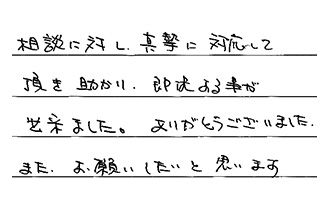 相談に対し、真摯に対応して
頂き助かり、即決する事が
出来ました。ありがとうございました。
また、お願いしたいと思います